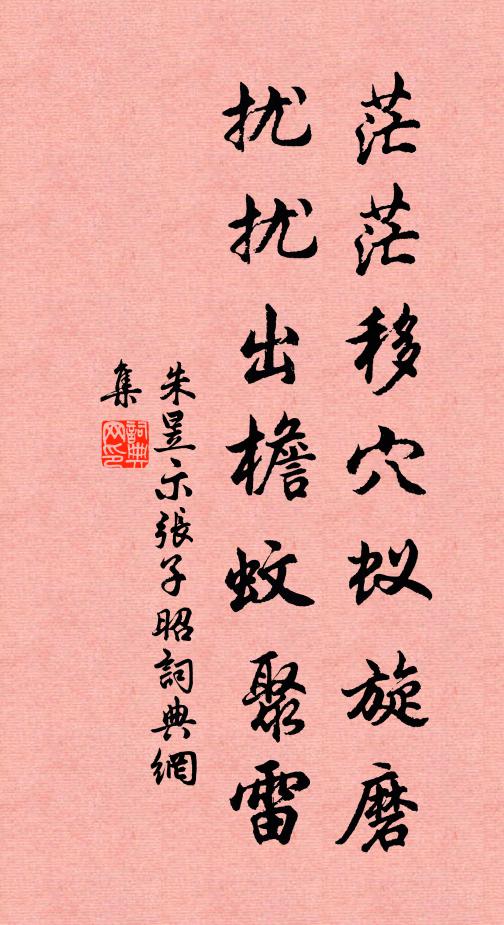 茫茫移穴蚁旋磨
扰扰出檐蚊聚雷
朱昱示張子昭詞典網
集
詞典
网印